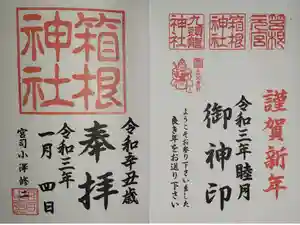 箱根
神社
奉拝
令和辛丑歳
令和三年
一月四日
宮司小澤修二
箱根
元宮
箱根
神社
九頭龍
神社
謹賀新年
令和三年睦月
御神印
ようこそお参り下さいました
良き年をお送り下さい